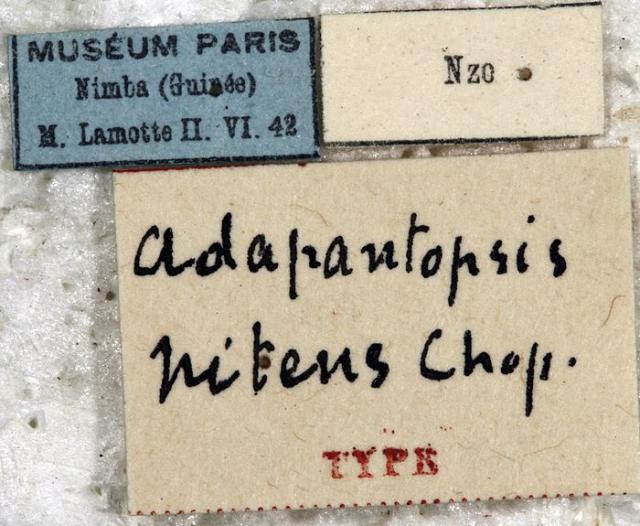 MUSÉUM PARIS
Nimba (Guinée)
M. Lamotte II. VI. 42
Nzo
Adapantopsis
nitens Chop.
TYPE